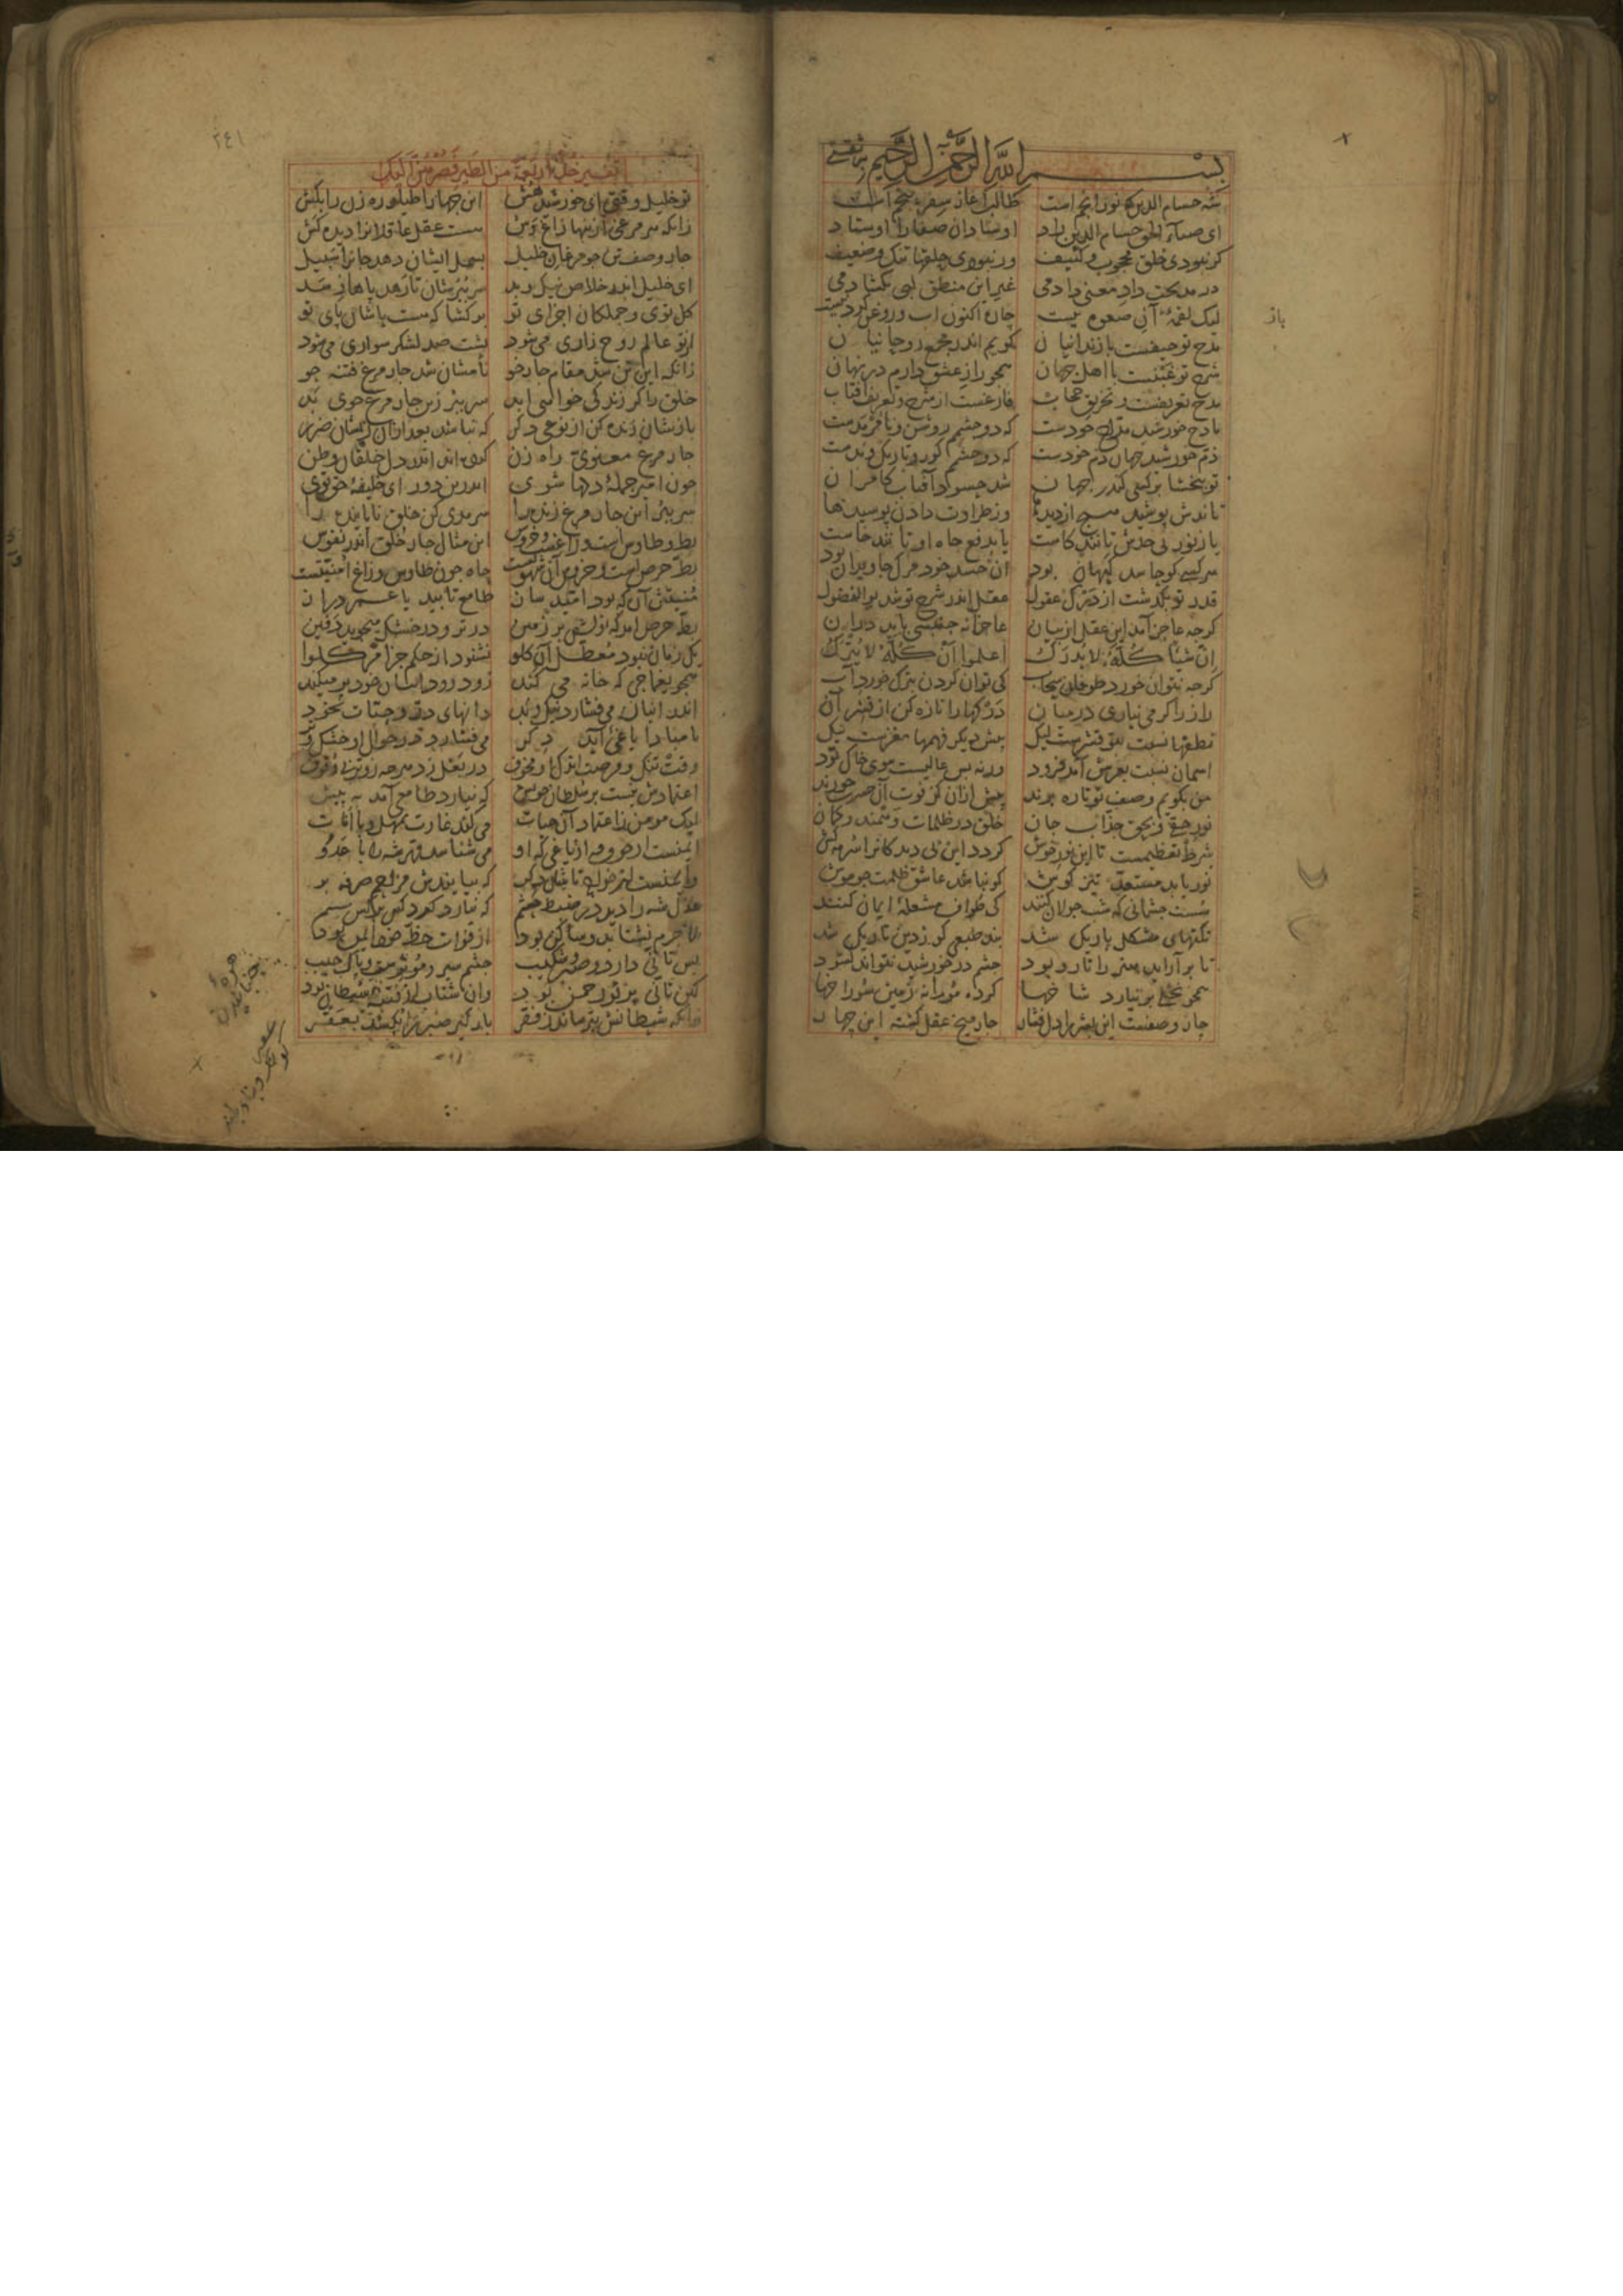 بسم الله الرحمن الرحیم
شه حسام الدین که نور انجم است طالب آغاز سفر پنجم است
ای ضیاء الحق حسام الدین راد اوستادان صفا را اوستاد
کر نبودی خلق محجوب و کثیف ور نبودی حلقها تنک و ضعیف
در مدیحت داد معنی دادمی غیر این منطق لبی بکشادمی
لیک لقمهٔ آنِ صعوه نیست چاره اکنون آب و روغن کردنیست
مدح تو حیفست با زندانیان کویم اندر مجمع روحانیان
شرح تو غبنست با اهل جهان همجو راز عشق دارم در نهان
مدح تعریفست و تخریق حجاب فارغست از شرح و تعریف آفتاب
مادح خورشید مداح خودست که دو جشمم روشن و نامرمدست
ذم خورشید جهان ذم خودست که دو جشمم کور و تاریک و بدست
تو ببخشا بر کسی کندر جهان شد حسود آفتاب کامران
تاندش پوشید هیچ از دیدها وز طراوت دادن پوسیدها
یا ز نور بی حدش تانند کاست یا بدفع جاه او تانند خاست
هر کسی کو حاسد کیهان بود آن حسد خود مرک جاویدان بود
قدر تو بکذشت از درک عقول عقل اندر شرح تو شد بوالفضول
کرجه عاجز آمد این عقل از بیان عاجزانه جنبشی باید در آن
ان شیئا کله لا یدرک اعلموا ان کله لا یترک
کرجه نتوان خورد طوفان سحاب کی توان کردن بترک خورد آب
راز را کر می نیاری در میان درکها را تازه کن از قشر آن
نطقها نسبت بتو قشرست لیک پیش دیکر فهمها مغزست نیک
آسمان نسبت بعرش آمد فرود ورنه بس عالیست سوی خاک تود
من بکویم وصف تو تا ره برند پیش از آن کز فوت آن حسرت خورند
نور حقی و بحق جذاب جان خلق در ظلمات وهمند و کمان
شرط تعظیمست تا این نور خوش کردد این بی دیدکانرا سرمه کش
نور یابد مستعد تیز کوش کو نباشد عاشق ظلمت جو موش
سست جشمانی که شب جولان کنند کی طواف مشعلهٔ ایمان کنند
نکتهای مشکل باریک شد بند طبعی کو ز دین تاریک شد
تا بر آراید هنر را تار و پود جشم در خورشید نتواند کشود
همجو نخلی بر نیارد شاخها کرده موشانه زمین سوراخها
جار وصفست این بشر را دل فشار جار میخ عقل کشته این جهار
باز
٢٤١
تفسیر خذ اربعة من الطیر فصرهن الیک
تو خلیل وقتی ای خورشید هش این جهار اطیار ره زن را بکش
زانکه هر مرغی ازینها زاغ وش هست عقل عاقلانرا دیده کش
جار وصف تن جو مرغان خلیل بسمل ایشان دهد جانرا سبیل
ای خلیل اندر خلاص نیک و بد سر ببرشان تا رهد پاها ز سد
کل توی و جملکان اجزای تو بر کشا که هست پاشان پای تو
از تو عالم روح زاری می شود پشت صد لشکر سواری می شود
زانکه این تن شد مقام جار خو نامشان شد جار مرغ فتنه جو
خلق را کر زندکی خواهی ابد سر ببر زین جار مرغ شوی بد
بازشان زنده کن از نوعی دکر که نباشد بعد از آن زیشان ضرر
جار مرغ معنوی راه زن کرده اند اندر دل خلقان وطن
جون امیر جملهٔ دلها شوی اندرین دور ای خلیفهٔ حق توی
سر ببر این جار مرغ زنده را سرمدی کن خلق ناپاینده را
بط و طاوس است و زاغست و خروس این مثال جار خلق اندر نفوس
بط حرص است و خروس آن شهوتست جاه جون طاوس و زاغ امنیتست
منیتش آن که بود امید ساز طامع تابید یا عمر دراز
بط حرص آمد که نولش بر زمین در تر و در خشک می جوید دفین
یک زمان نبود معطل آن کلو نشنود از حکم جز امر کلوا
همجو یغماجی که خانه می کند زود زود انبان خود پر میکند
اندر انبان می فشارد نیک و بد دانهای در و حبات نخود
تا مبادا یاغی آید دکر می فشارد در جوال او خشک و تر
وقت تنک و فرصت اندک او مخوف در بغل زد هر جه زوتر بی وقوف
اعتمادش نیست بر سلطان خویش که نیارد طامعی آمد به پیش
لیک مومن ز اعتماد آن حیات می کند غارت بمهل و با انات
ایمنست از فوت و از یاغی که او می شناسد قهر شه را بر عدو
وایمنست از خواجه تاشان دکر که بیایندش مزاحم صرفه بر
عدل شه را دید در ضبط حشم که نیارد کرد کس بر کس ستم
لاجرم نشتابد و ساکن بود از فوات حظ خود ایمن بود
بس تأنی دارد و صبر و شکیب جشم سیر و مؤثرست و پاک جیب
کین تأنی پرتو رحمن بود وان شتاب از هزهٔ شیطان بود
زانکه شیطانش بترساند ز فقر بارکیر صبر را بکشد بعقر